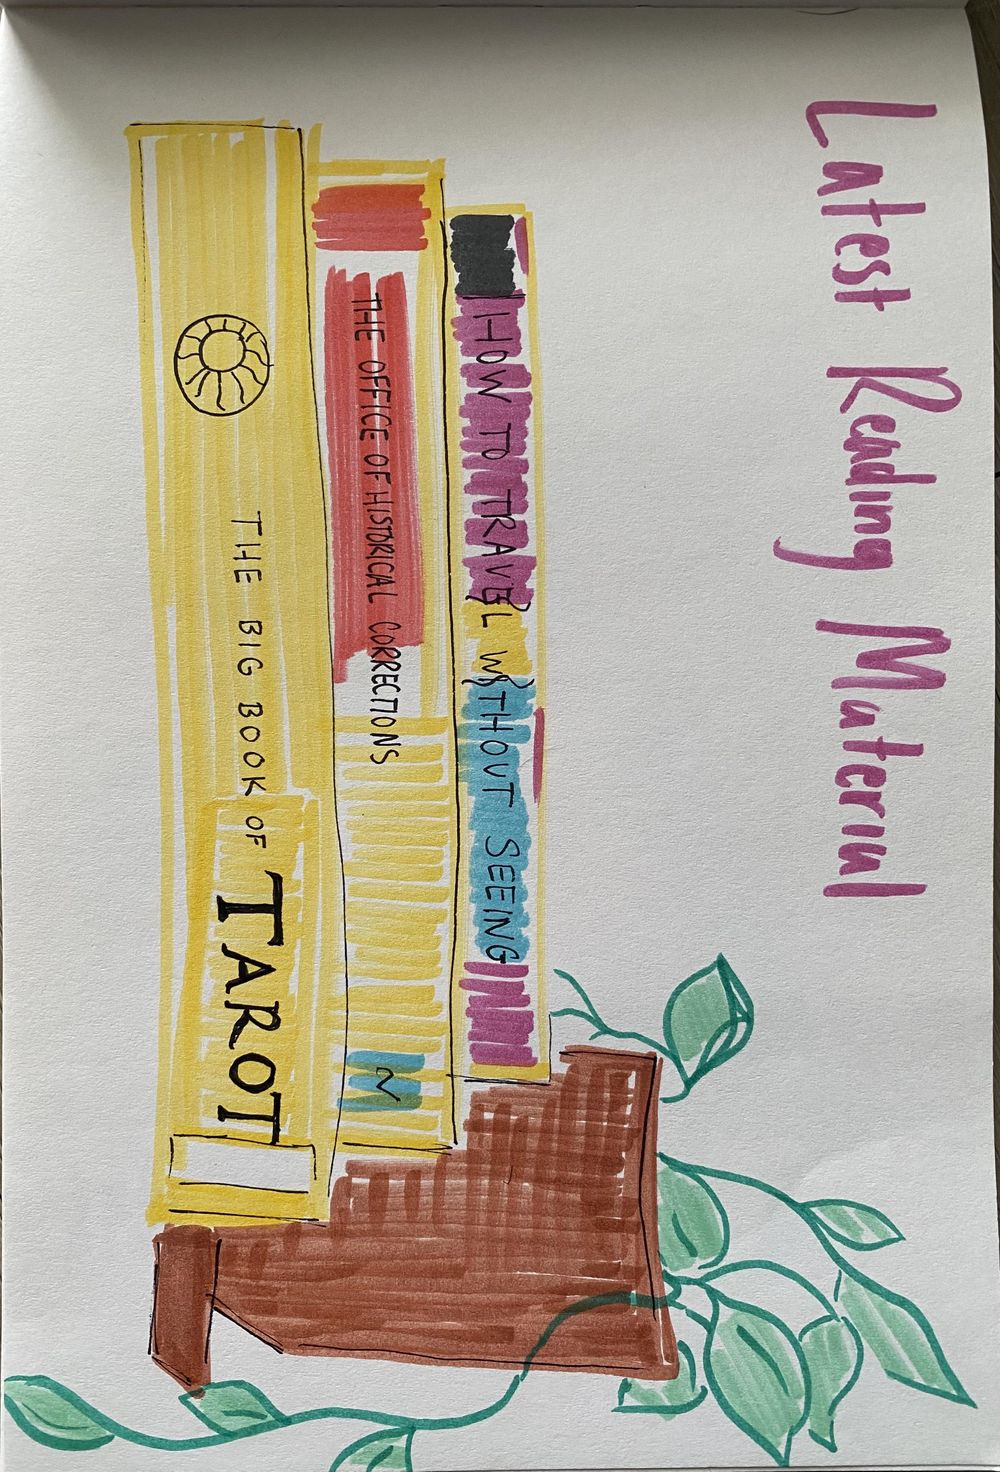 Latest Reading Material
HOW TO TRAVEL WITHOUT SEEING
THE OFFICE OF HISTORICAL CORRECTIONS
THE BIG BOOK OF TAROT